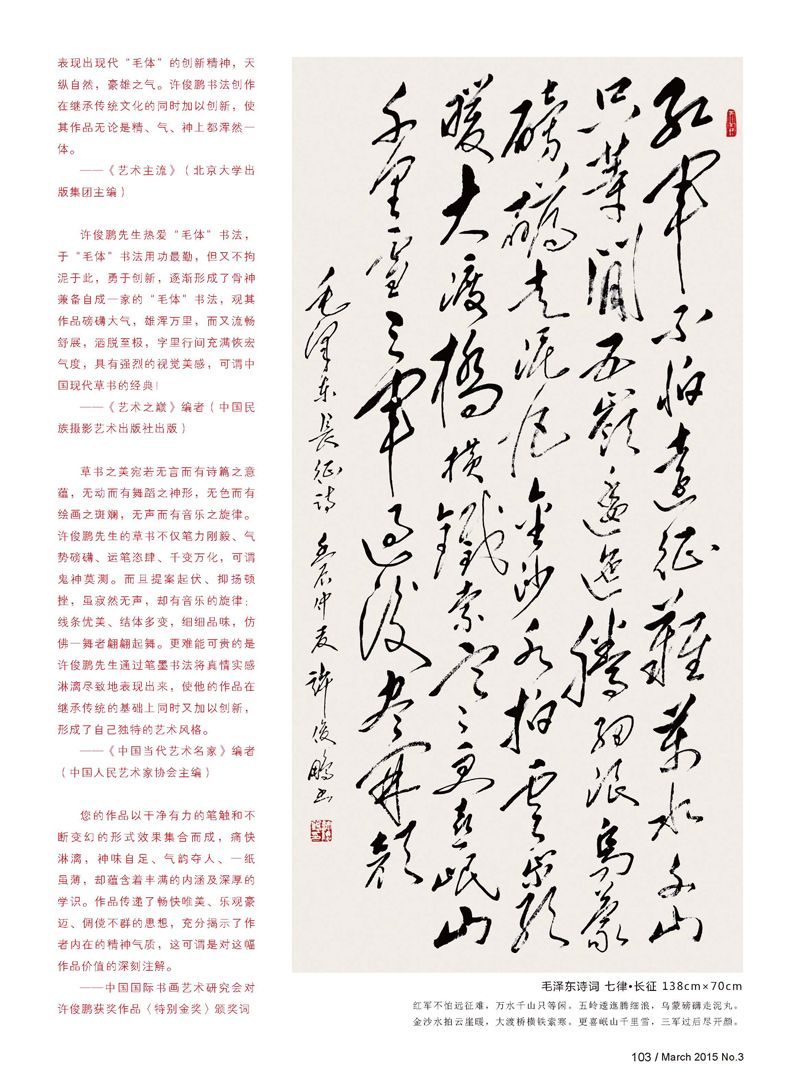 表现出现代“毛体”的创新精神，天
纵自然，豪雄之气。许俊鹏书法创作
在继承传统文化的同时加以创新，使
其作品无论是精、气、神上都浑然一
体。
——《艺术主流》（北京大学出
版集团主编）
许俊鹏先生热爱“毛体”书法，
于“毛体”书法用功最勤，但又不拘
泥于此，勇于创新，逐渐形成了骨神
兼备自成一家的“毛体”书法，观其
作品磅礴大气，雄浑万里，而又流畅
舒展，洒脱至极，字里行间充满恢宏
气度，具有强烈的视觉美感，可谓中
国现代草书的经典！
——《艺术之巅》编者（中国民
族摄影艺术出版社出版）
草书之美宛若无言而有诗篇之意
蕴，无动而有舞蹈之神形，无色而有
绘画之斑斓，无声而有音乐之旋律。
许俊鹏先生的草书不仅笔力刚毅、气
势磅礴、运笔恣肆、千变万化，可谓
鬼神莫测。而且提案起伏、抑扬顿
挫，虽寂然无声，却有音乐的旋律；
线条优美、结体多变，细细品味，仿
佛一舞者翩翩起舞。更难能可贵的是
许俊鹏先生通过笔墨书法将真情实感
淋漓尽致地表现出来，使他的作品在
继承传统的基础上同时又加以创新，
形成了自己独特的艺术风格。
——《中国当代艺术名家》编者
（中国人民艺术家协会主编）
您的作品以干净有力的笔触和不
断变幻的形式效果集合而成，痛快
淋漓，神味自足、气韵夺人、一纸
虽薄，却蕴含着丰满的内涵及深厚的
学识。作品传递了畅快唯美、乐观豪
迈、倜傥不群的思想，充分揭示了作
者内在的精神气质，这可谓是对这幅
作品价值的深刻注解。
——中国国际书画艺术研究会对
许俊鹏获奖作品〈特别金奖〉颁奖词
红军不怕远征難萬水千山
只等閒五嶺逶迤腾细浪烏蒙
磅礴走泥丸金沙水拍雲崖
暖大渡橋横鐵索寒更喜岷山
千里雪三军過後尽開颜
毛泽东長征詩 壬辰仲夏 許俊鵬书
毛泽东诗词 七律•长征 138cm×70cm
红军不怕远征难，万水千山只等闲。五岭逶迤腾细浪，乌蒙磅礴走泥丸。
金沙水拍云崖暖，大渡桥横铁索寒。更喜岷山千里雪，三军过后尽开颜。
103 / March 2015 No.3